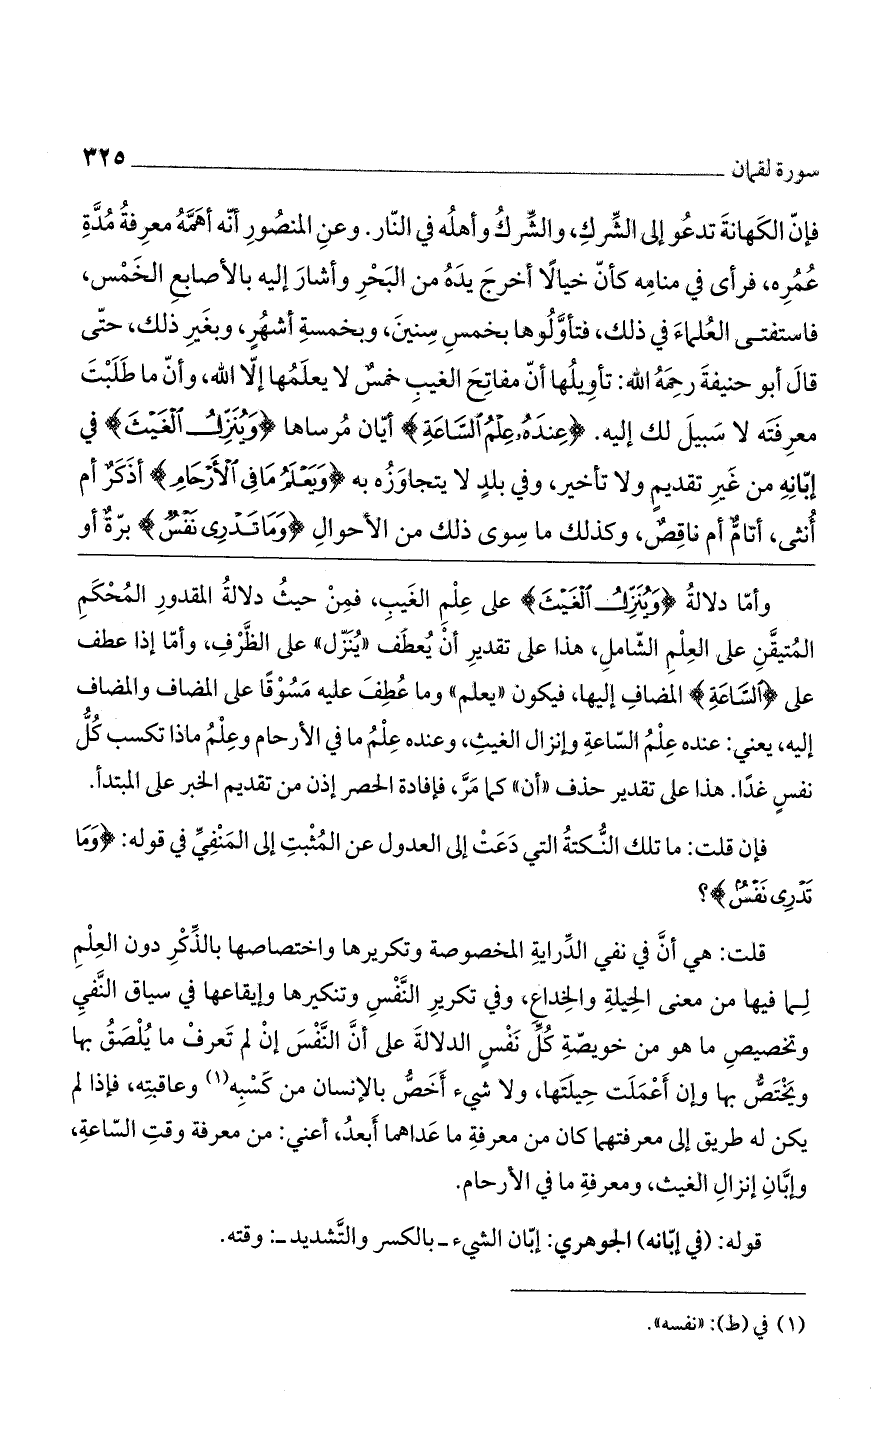 سورة لقمان ٣٢٥
فإنّ الكَهانةَ تدعُو إلى الشِّركِ، والشِّركُ وأهلُه في النّار. وعنِ المنصُورِ أنّه أهَمَّهُ معرفةُ مُدَّةِ
عُمُرِه، فرأى في منامِه كأنّ خيالًا أخرجَ يدَهُ من البَحْرِ وأشارَ إليه بالأصابعِ الخَمْس،
فاستفتى العُلماءَ في ذلك، فتأوَّلُوها بخمسِ سِنينَ، وبخمسةِ أشهُرٍ، وبغَيرِ ذلك، حتّى
قالَ أبو حنيفةَ رحِمَهُ الله: تأويلُها أنّ مفاتِحَ الغيبِ خمسٌ لا يعلَمُها إلّا الله، وأنّ ما طَلَبْتَ
معرفَتَه لا سَبيلَ لك إليه. ﴿عِندَهُۥ عِلۡمُ ٱلسَّاعَةِ﴾ أيّان مُرساها ﴿وَيُنَزِّلُ ٱلۡغَيۡثَ﴾ في
إبّانِهِ من غَيرِ تقديمٍ ولا تأخير، وفي بلدٍ لا يتجاوَزُه به ﴿وَيَعۡلَمُ مَا فِى ٱلۡأَرۡحَامِ﴾ أذَكَرٌ أم
أُنثى، أتامٌّ أم ناقِصٌ، وكذلك ما سِوى ذلك من الأحوالِ ﴿وَمَا تَدۡرِى نَفۡسٌ﴾ برّةٌ أو
وأمّا دلالةُ ﴿وَيُنَزِّلُ ٱلۡغَيۡثَ﴾ على عِلْمِ الغَيبِ، فمِنْ حيثُ دلالةُ المقدورِ المُحْكَمِ
المُتيقَّنِ على العِلْمِ الشّاملِ، هذا على تقديرِ أنْ يُعطَف «يُنَزّل» على الظَّرْفِ، وأمّا إذا عطف
على ﴿ٱلسَّاعَةِ﴾ المضافِ إليها، فيكون «يعلم» وما عُطِفَ عليه مَسُوْقًا على المضاف والمضاف
إليه، يعني: عنده عِلْمُ السّاعةِ وإنزال الغيثِ، وعنده عِلْمُ ما في الأرحام وعِلْمُ ماذا تكسب كُلُّ
نفسٍ غدًا. هذا على تقدير حذف «أن» كما مَرَّ، فإفادة الحصر إذن من تقديم الخبر على المبتدأ.
فإن قلت: ما تلك النُّكتةُ التي دَعَتْ إلى العدول عن المُثْبتِ إلى المَنْفِيِّ في قوله: ﴿وَمَا
تَدۡرِى نَفۡسٌ﴾؟
قلت: هي أنَّ في نفي الدِّرايةِ المخصوصة وتكريرها واختصاصها بالذِّكْرِ دون العِلْمِ
لِما فيها من معنى الحِيلةِ والخِداع، وفي تكريرِ النَّفْسِ وتنكيرها وإيقاعها في سياق النَّفي
وتخصيصِ ما هو من خويصّةِ كُلِّ نَفْسٍ الدلالةَ على أنَّ النَّفْسَ إنْ لم تَعرفْ ما يُلْصَقُ بها
ويَخْتَصُّ بها وإن أعْمَلَت حِيلَتَها، ولا شيء أخَصُّ بالإنسان من كَسْبِه(١) وعاقبتِه، فإذا لم
يكن له طريق إلى معرفتهما كان من معرفةِ ما عَداهما أبعدُ، أعني: من معرفة وقتِ السّاعةِ،
وإبَّانِ إنزالِ الغيث، ومعرفةِ ما في الأرحام.
قوله: (في إبّانه) الجوهري: إبّان الشيء ـ بالكسر والتَّشديد ـ: وقته.
(١) في (ط): «نفسه».